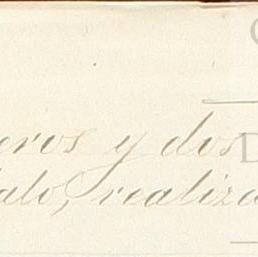 eros y dos
alo, realiza